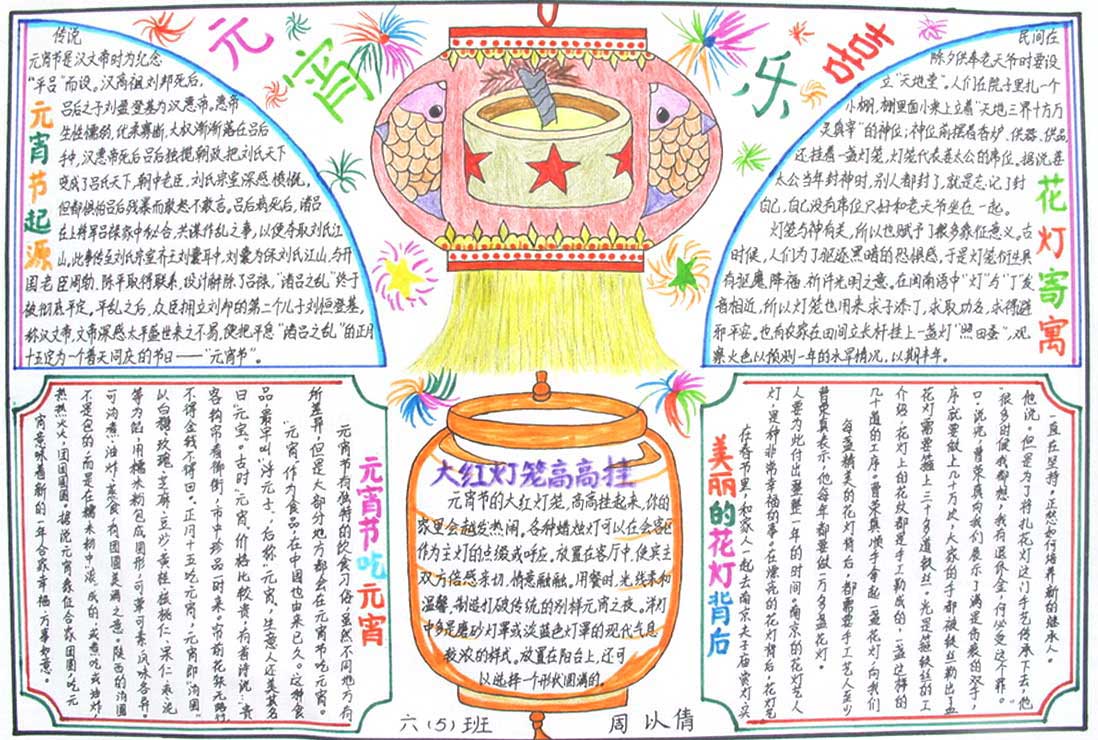 元宵 乐吉
元宵节起源
传说
元宵节是汉文帝时为纪念
“平吕”而设。汉高祖刘邦死后,
吕后之子刘盈登基为汉惠帝。惠帝
生性懦弱,优柔寡断,大权渐渐落在吕后
手中,汉惠帝死后吕后独揽朝政把刘氏天下
变成了吕氏天下,朝中老臣,刘氏宗室深感愤慨,
但都惧怕吕后残暴而敢怒不敢言。吕后病死后,诸吕
在上将军吕禄家中秘合,共谋作乱之事,以便夺取刘氏江
山,此事传至刘氏宗室齐王刘囊耳中,刘囊为保刘氏江山,与开
国老臣周勃,陈平取得联系,设计解除了吕禄,“诸吕之乱”终于
被彻底平定。平乱之后,众臣拥立刘邦的第二个儿子刘恒登基,
称汉文帝,文帝深感太平盛世来之不易,便把平息“诸吕之乱”的正月
十五定为一个普天同庆的节日——“元宵节”。
花灯寄寓
民间在
除夕供奉老天爷时要设
立“天地堂”。人们在院子里扎一个
小棚,棚里面小桌上立着“天地三界十方万
灵真宰”的神位;神位前摆着香炉、供器、供品,
还挂着一盏灯笼,灯笼代表姜太公的席位。据说姜
太公当年封神时,别人都封了,就是忘记了封
自己,自己没有席位只好和老天爷坐在一起。
灯笼与神有关,所以也赋予了很多象征意义。古
时候,人们为了驱逐黑暗的恐惧感,于是灯笼衍生具
有驱魔降福、祈许光明之意。在闽南语中“灯”与“丁”发
音相近,所以灯笼也用来求子添丁,求取功名,求得避
邪平安。也有农家在田间立长杆挂上一盏灯“照田蚕”,观
察火色以预测一年的水旱情况,以期丰年。
元宵节吃元宵
元宵节有独特的饮食习俗,虽然不同地方有
所差异,但是大部分地方都会在元宵节吃元宵。
“元宵”作为食品,在中国也由来已久。这种食
品,最早叫“浮元子”,后称“元宵”,生意人还美其名
曰“元宝”。古时“元宵”价格比较贵,有首诗说:“贵
客钩帘看御街,市中珍品一时来。帘前花架无路行
不得金钱不得回。”正月十五吃元宵,“元宵”即“汤圆”
以白糖、玫瑰、芝麻、豆沙、黄桂、核桃仁、果仁、枣泥
等为馅,用糯米粉包成圆形,可荤可素,风味各异。
可汤煮、油炸、蒸食,有团圆美满之意。陕西的汤圆
不是包的,而是在糯米粉中“滚”成的,或煮吃或油炸,
热热火火,团团圆圆。据说元宵象征合家团圆,吃元
宵意味着新的一年合家幸福、万事如意。
大红灯笼高高挂
元宵节的大红灯笼,高高挂起来,你的
家里会越发热闹。各种蜡烛灯可以在会客区
作为主灯的点缀或呼应。放置在客厅中,使宾主
双方倍感亲切,情意融融。用餐时,光线柔和
温馨,制造打破传统的别样元宵之夜。洋灯
中多是磨砂灯罩或淡蓝色灯罩的现代气息
较浓的样式。放置在阳台上,还可
以选择一个形状圆满的。
美丽的花灯背后
一直在坚持,正想如何培养新的继承人。
他说。但是为了将扎花灯这门手艺传承下去,他
“很多时候我都想,我有退休金,何必受这个罪。”
口。说完,曹荣真向我们展示了满是伤痕的双手,
序就要做上几千万次,大家的手都被铁丝勒出了血
花灯需要箍上三十多道铁丝。光是箍铁丝的工
介绍,花灯上的花纹都是手工勒成的,一盏这样的
几十道的工序。曹荣真顺手拿起一盏花灯,向我们
每盏精美的花灯背后,都需要手工艺人至少
曹荣真表示,他每年都要做一万多盏花灯。
人要为此付出整整一年的时间。南京的花灯艺人
灯,是种非常幸福的事。在漂亮的花灯背后,花灯艺
在春节里,和家人一起去南京夫子庙赏灯、买
六(5)班
周以倩